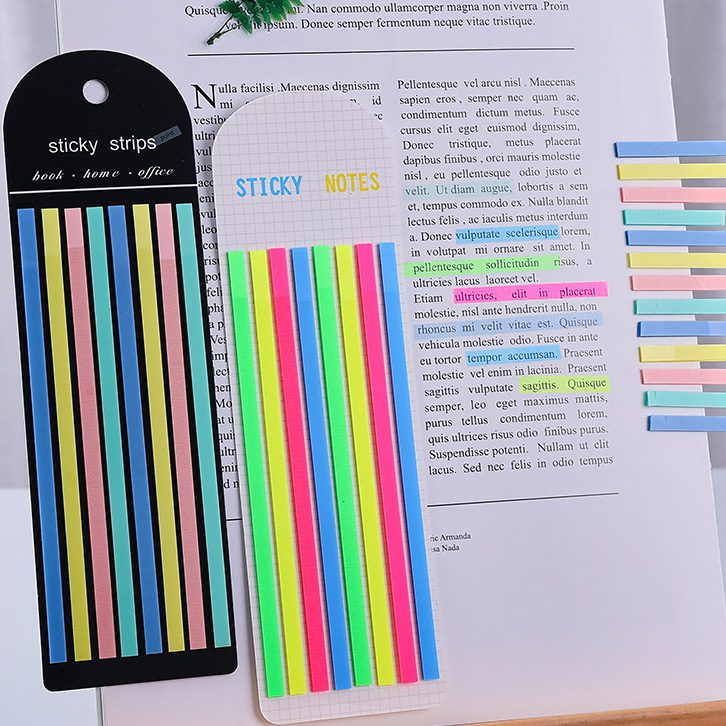 Nan commodo ullamcorper magna non viverra .Proin
ipsum. Donec semper fermentum neque vitae tristique.
sticky strips
point
book · home · office
STICKY NOTES
Nulla facilisi .Maecenas dignissim
Pellentesque vel arcu nisl . Maecenas
sapien eros , semper nec quam ac,
condimentum dictum metus. Fusce
cursus elit eget euismod dignissim,
Donec tristique, metus placerat
dapibus finibus , orci mauris molestie
nisl , eu pellentesque odio justo et
velit. Ut diam augue, lobortis a sem
et, tempus commodo ex. Nulla blandit
lectus felis , ac iaculis metus interdum
a. Donec vulputate scelerisque lorem,
in volutpat mi ornare sit amet. In
pellentesque sollicitudin risus, a
ultricies lacus laoreet vel.
Etiam ultricies, elit in placerat
molestie, nisl ante hendrerit nulla, non
rhoncus mi velit vitae est. Quisque
vehicula molestie odio. Fusce in ante
eu tortor tempor accumsan. Praesent
molestie vel enim in lacinia. Praesent
sagittis vulputate sagittis. Quisque
semper, leo eget maximus mattis,
purus tellus condimentum lorem,
quis ultrices risus odio finibus purus.
Suspendisse potenti. Nullam ut elit
lacus. Sed nec felis in odio tempus
Armanda
Nada